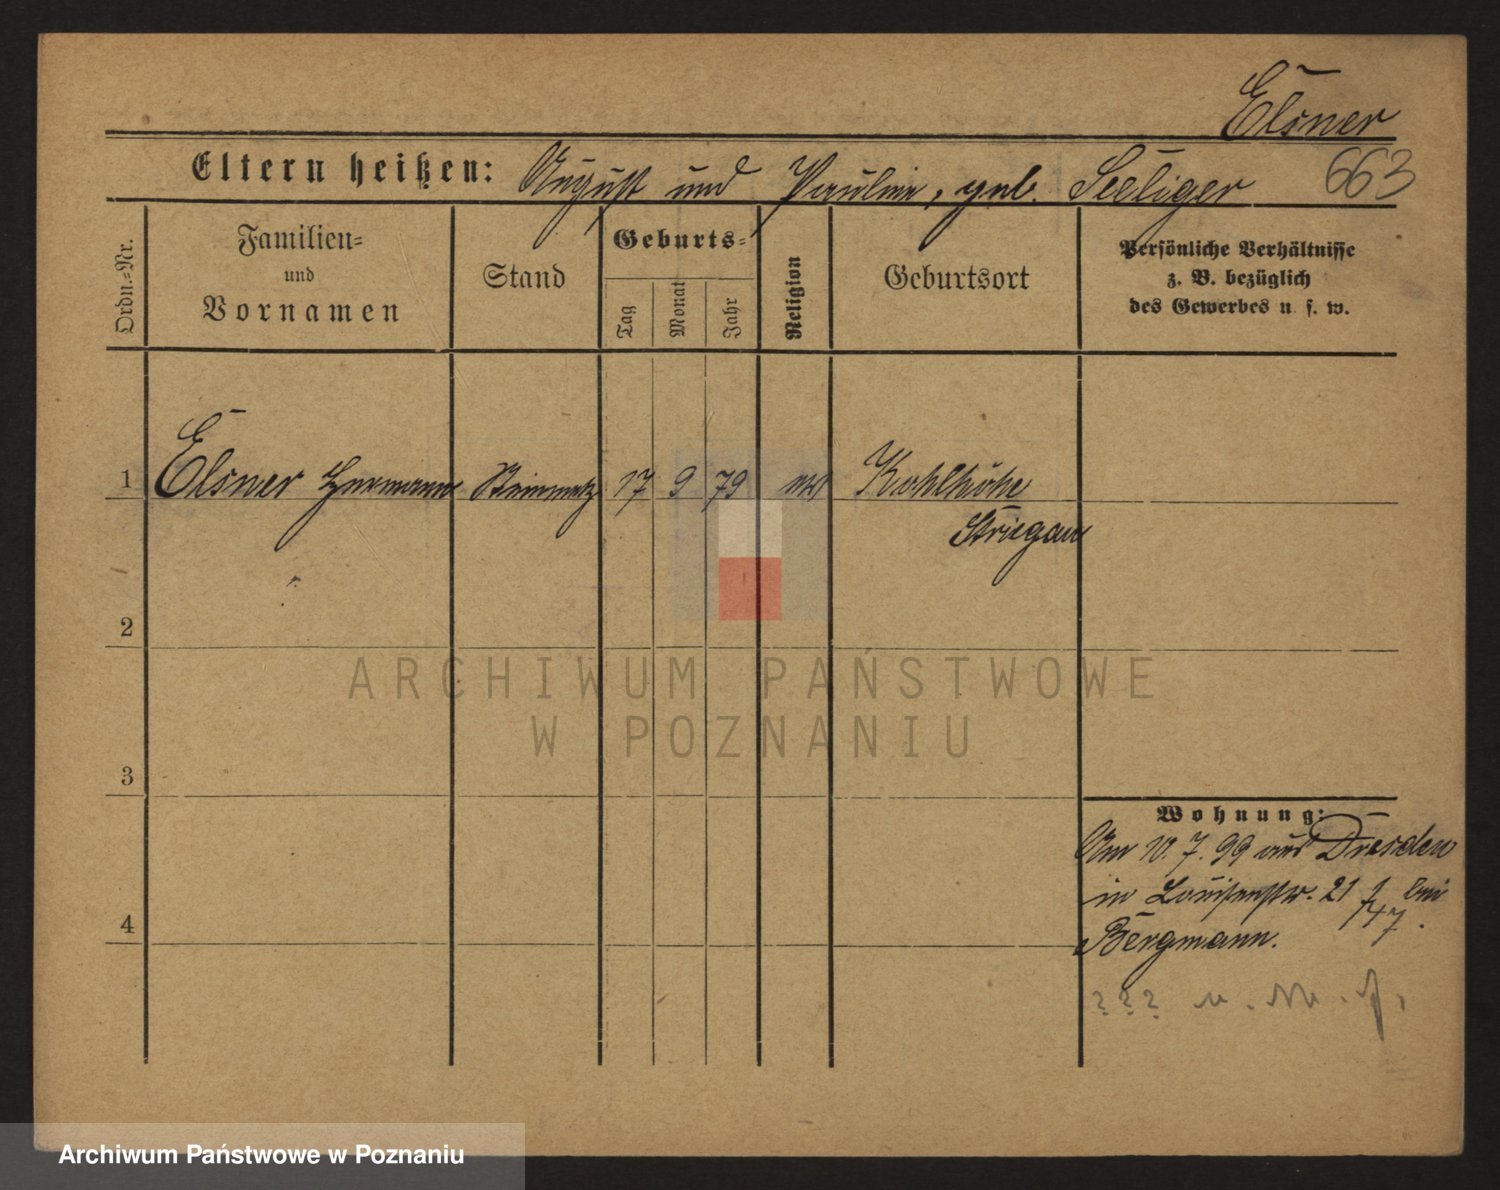 Elsner
Eltern heißen: August und Pauline, geb. Seeliger 663
Ordn.-Nr.
Familien-
und
Vornamen
Stand
Geburts-
Tag
Monat
Jahr
Religion
Geburtsort
Persönliche Verhältnisse
z. B. bezüglich
des Gewerbes u. s. w.
1 Elsner Hermann Steinmetz 17 9 79 Kohlhöhe
Striegau
2
ARCHIWUM PAŃSTWOWE
W POZNANIU
3
Wohnung:
Am 10. 7. 99 aus Dresden
in Louisenstr. 21 bei
Bergmann.
4
? ? ?
Archiwum Państwowe w Poznaniu